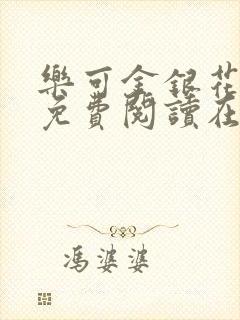 樂可金銀花
免費閱讀在
馮婆婆